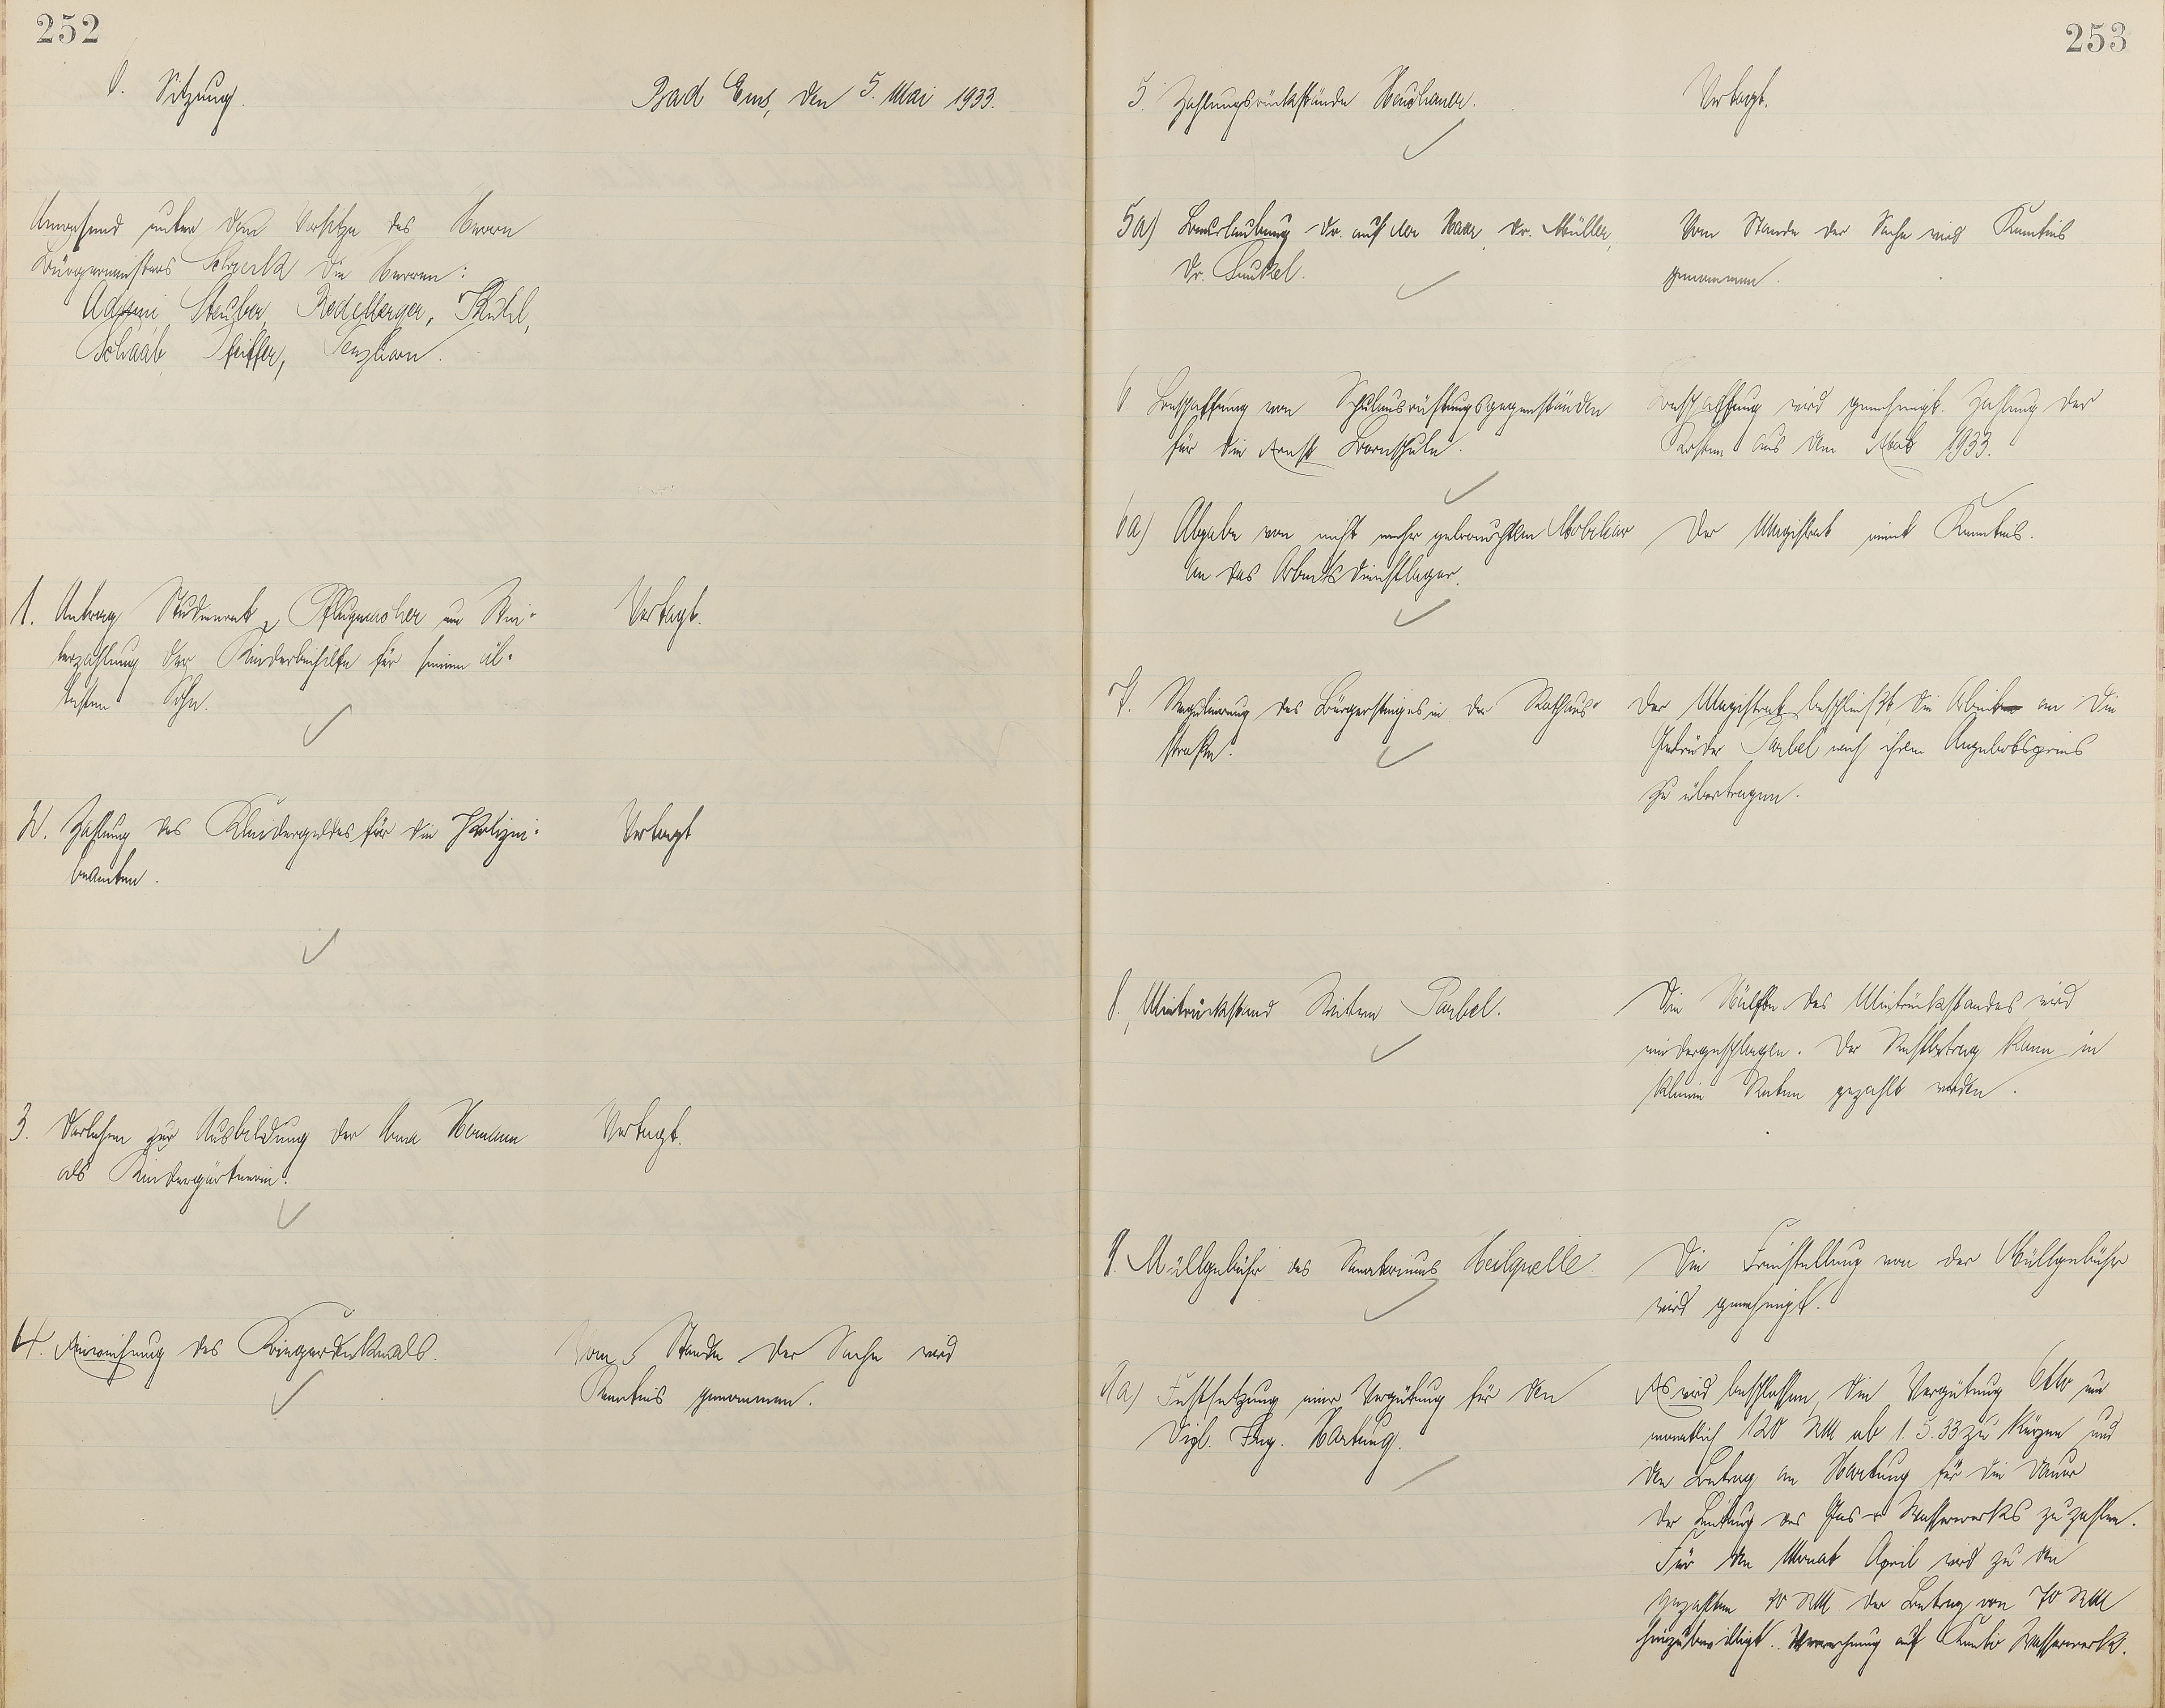 252
8. Sitzung.
Bad Ems, den 5. Mai 1933.
Anwesend unter dem Vorsitze des Herrn
Bürgermeisters die Herren:
Adami, Steuber, Redelberger, Kuhl,
Schaab, Pfeiffer,
1. Antrag Studienrat Pflugmacher um Wei-
terzahlung der Kinderbeihilfe für seinen äl-
testen Sohn.
Vertagt.
2. Zahlung des Kleidergeldes für die Polizei-
beamten.
Vertagt
3. Darlehen zur Ausbildung der Anna Hermann
als Kindergärtnerin.
Vertagt.
4. Einweihung des Kriegerdenkmals.
Vom Stande der Sache wird
Kenntnis genommen.
253
5. Zahlungsrückstände
Vertagt.
5a) Beurlaubung Dr. auf der Haar, Dr. Müller,
Dr. Kunkel.
Vom Stande der Sache wird Kenntnis
genommen.
6 Beschaffung von Schulausrüstungsgegenständen
für die Ernst Bornschule.
Beschaffung wird genehmigt. Zahlung der
Kosten aus dem Etat 1933.
6a) Abgabe von nicht mehr gebrauchtem Mobiliar
an das Arbeitsdienstlager.
Der Magistrat nimt Kenntnis.
7. Regulierung des Bürgersteiges in der Rathaus-
straße.
Der Magistrat beschließt, die Arbeit an die
Gebrüder Parbel nach ihrem Angebotspreis
zu übertragen.
8. Mietrückstand Witwe Parbel.
Die Hälfte des Mietrückstandes wird
niedergeschlagen. Der Restbetrag kann in
kleinen Raten gezahlt werden.
9. Müllgebühr des Sanatoriums Heilquelle.
Die Freistellung von der Müllgebühr
wird genehmigt.
9a) Festsetzung einer Vergütung für den
Dipl. Ing. Hartung.
Es wird beschlossen, die Vergütung Otto um
monatlich 120 RM ab 1.5.33 zu kürzen und
den Betrag an Hartung für die Dauer
der Leitung des Gas u Wasserwerks zu zahlen.
Für den Monat April wird zu den
gezahlten RM der Betrag von 70 RM
hinzubewilligt. Verrechnung auf Konto Wasserwerk.